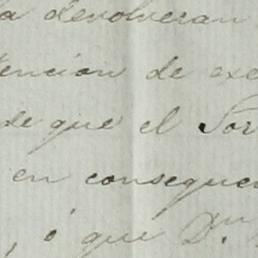 la devolveran
tencion de exe
de que el Sor
en consequen
, ó que Dn